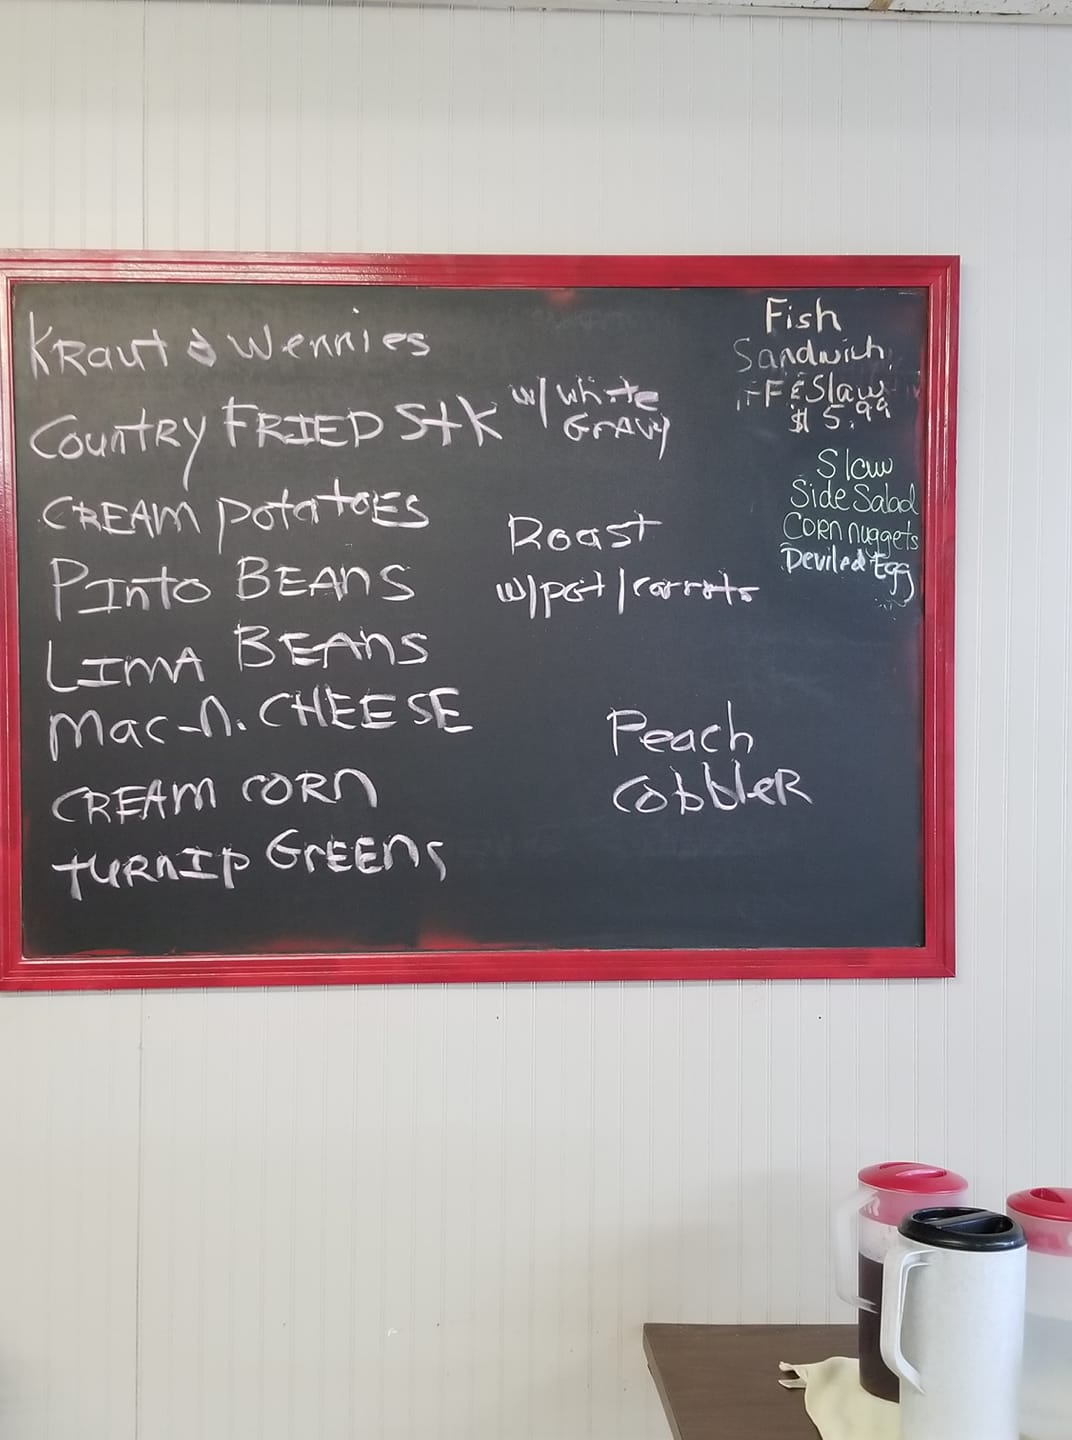 Kraut & Wennies
Country FRIED Stk w/ white
Gravy
CREAM potatoes
PInto BEANS
LIMA BEANS
Mac-n. CHEESE
CREAM CORN
turnip GrEEns
Roast
w/pot/carrots
Peach
CobbleR
Fish
Sandwich
FF & Slaw
$ 5.99
Slaw
Side Salad
Corn nuggets
Deviled Egg